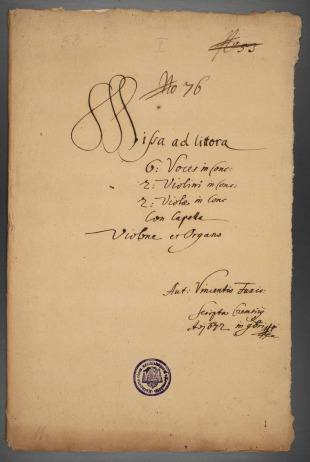 53
I
No 76
Missa ad littora
6: Voces in Conc:
2: Violini in Conc:
2: Violæ in Conc
Con Capella
Violone et Organo
Aut: Vincentio Fuxio.
Scripta Cremsirij
Ao 1672 in